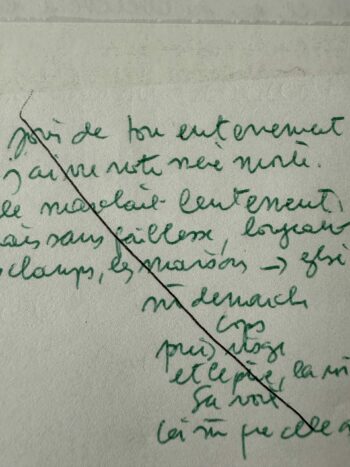 jour de ton enterrement
j'ai vu notre mère morte.
le marchait lentement,
ais sans faiblesse, longeant
s champs, les maisons → église
m̄ démarche
corps
puis visage
et le pire, la
Sa voix
m̄ que celle